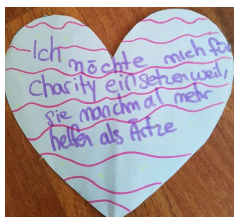 Ich möchte mich für
charity einsetzen weil,
sie manchmal mehr
helfen als Ärtze